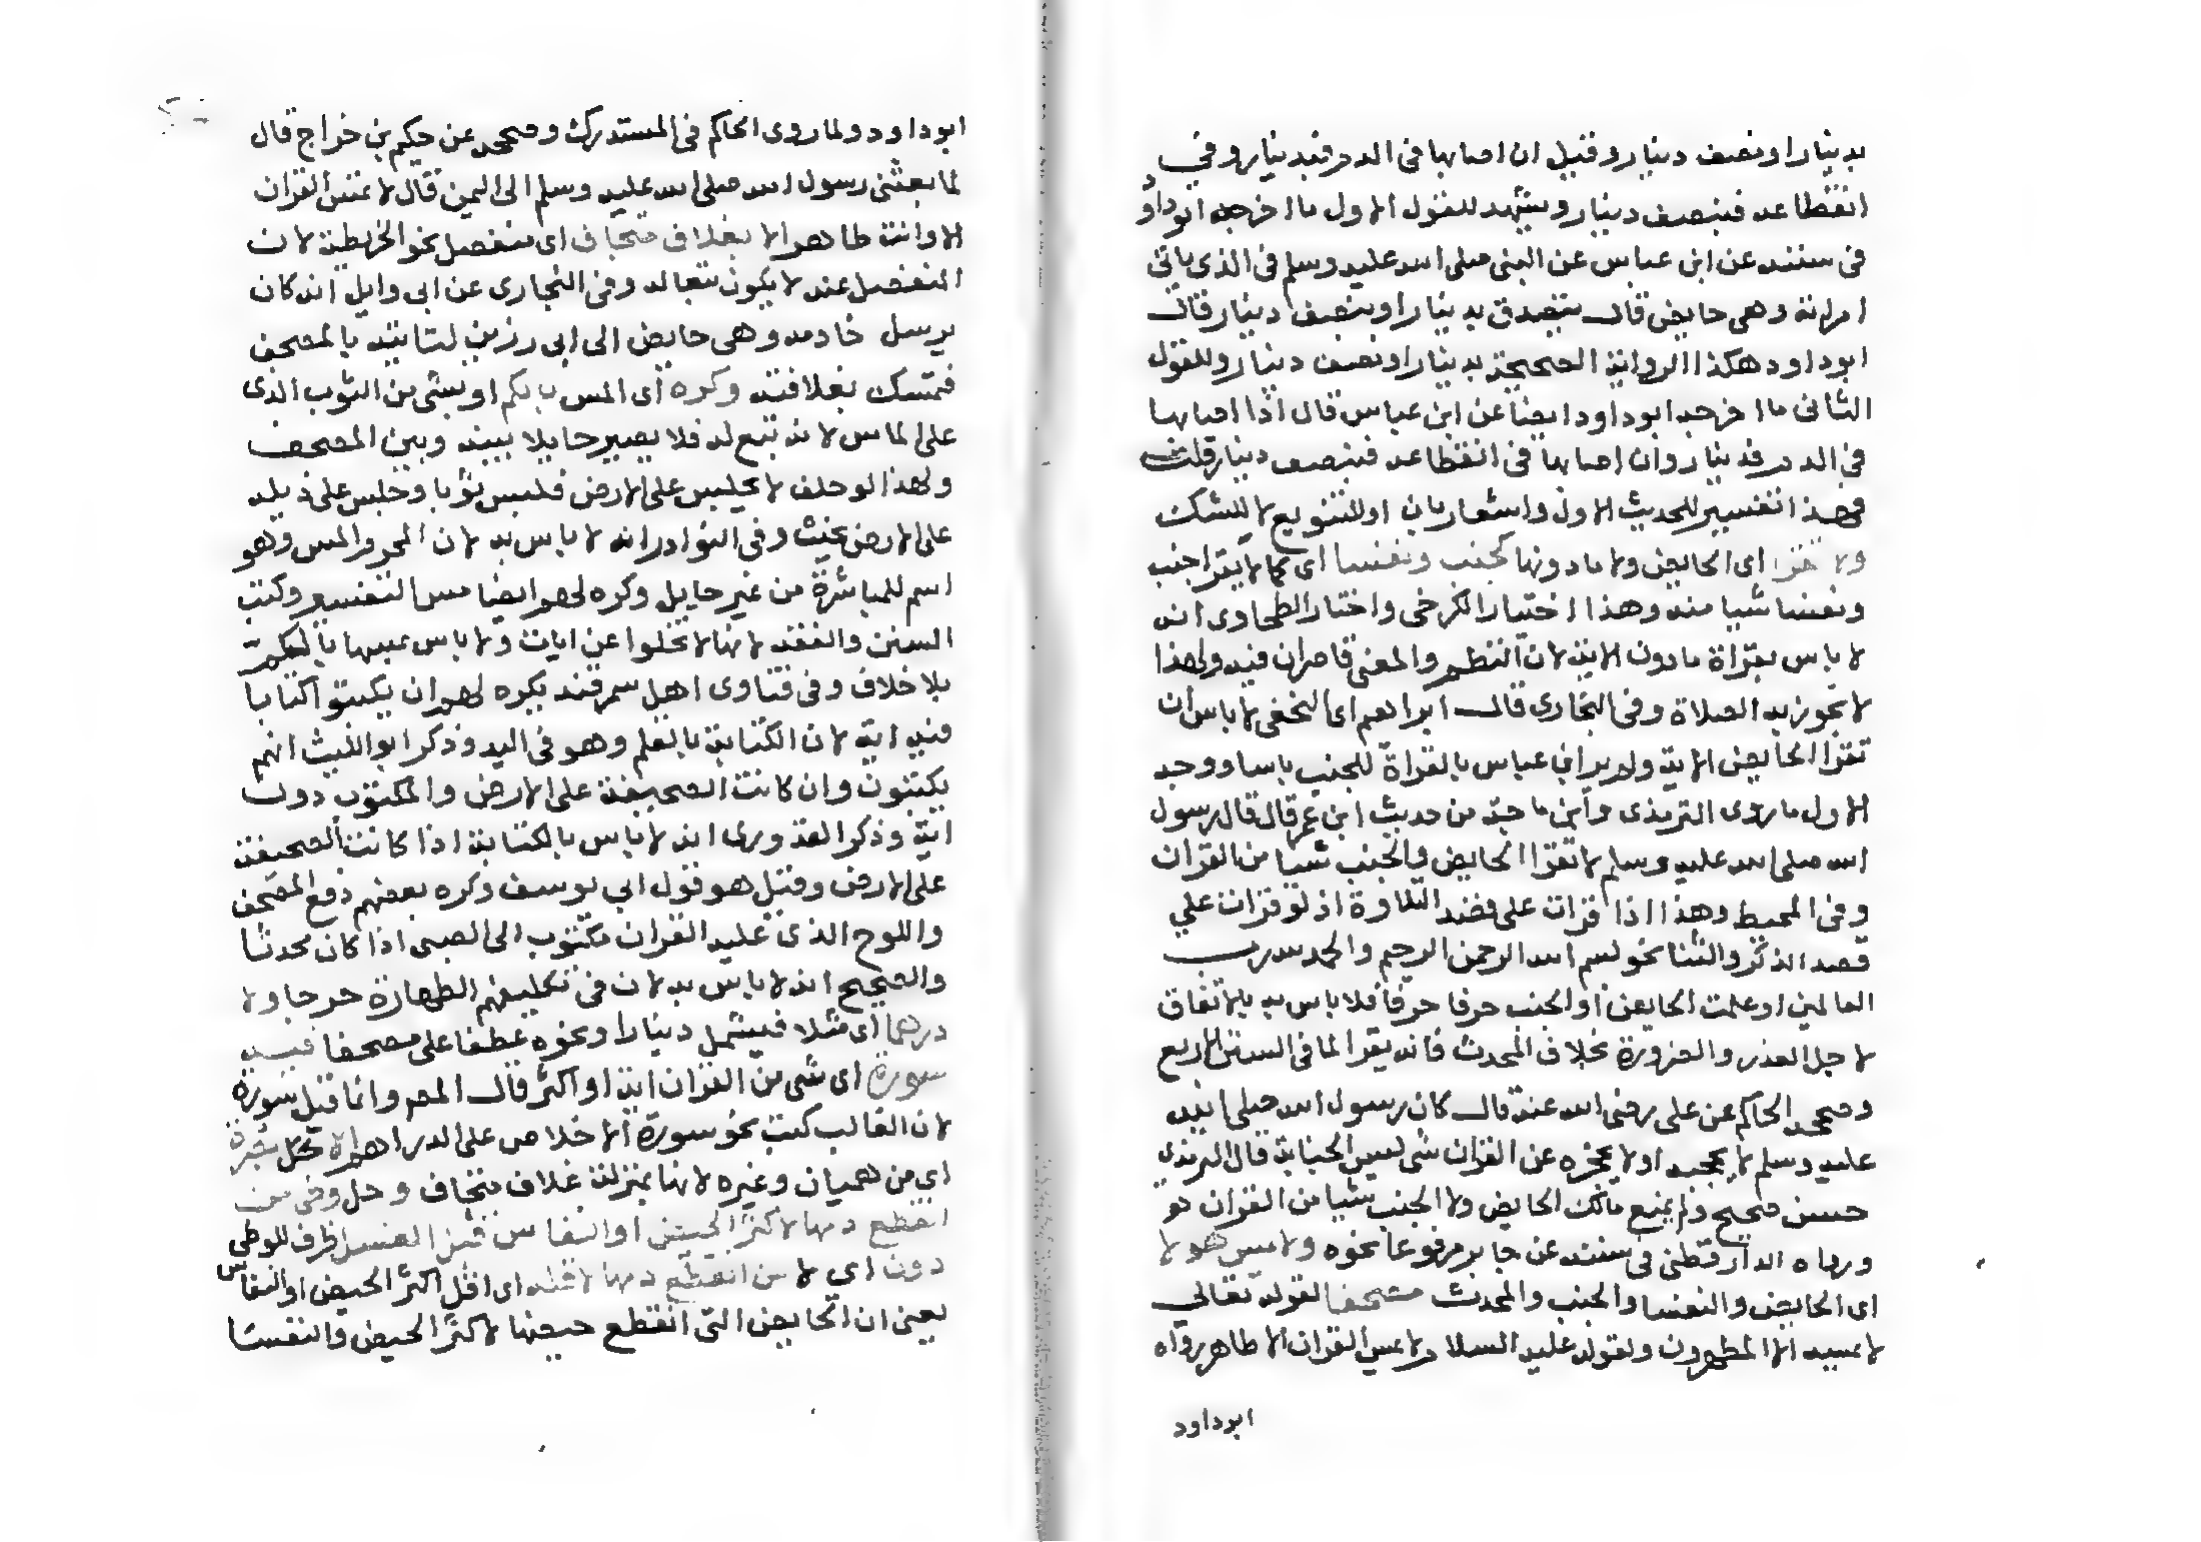 بدينار او نصف دينار وقيل ان اصابها في الدم فبدينار وفي
انقطاعه فبنصف دينار ويشهد للقول الاول ما اخرجه ابو داود
في سننه عن ابن عباس عن النبي صلى الله عليه وسلم في الذي ياتي
امراته وهي حايض قال يتصدق بدينار او بنصف دينار قال
ابو داود هكذا الرواية الصحيحة بدينار او نصف دينار وللقول
الثاني ما اخرجه ابو داود ايضا عن ابن عباس قال اذا اصابها
في الدم فدينار وان اصابها في انقطاعه فبنصف دينار قلت
فهذا تفسير للحديث الاول واشعار بان او للتنويع لا للشك
ولا تقرا اي الحايض ولا ما دونها كجنب ونفسا اي كما لا يقرا جنب
ونفسا شيا منه وهذا اختيار الكرخي واختار الطحاوي انه
لا باس بقراة ما دون الاية لان النظم والمعنى قاصران فيه ولهذا
لا تجوز به الصلاة وفي البخاري قال ابراهيم اي النخعي لا باس ان
تقرا الحايض الاية ولم ير ابن عباس بالقراة للجنب باسا ووجه
الاول ما روى الترمذي وابن ماجة من حديث ابن عمر قال قال رسول
الله صلى الله عليه وسلم لا تقرا الحايض والجنب شيا من القران
وفي المحيط وهذا اذا قرات على قصد التلاوة اذ لو قرات علي
قصد الذكر والثنا نحو بسم الله الرحمن الرحيم والحمد لله رب
العالمين او علمت الحايض او الجنب حرفا حرفا فلا باس به بالاتفاق
لاجل العذر والضرورة بخلاف المحدث فانه يقرا لما في السنن الاربع
وصححه الحاكم عن علي رضي الله عنه قال كان رسول الله صلى الله
عليه وسلم لا يحجبه او لا يحجزه عن القران شي ليس الجنابة قال الترمذي
حسن صحيح ولم يمنع مالك الحايض ولا الجنب شيا من القران هو
ورواه الدارقطني في سننه عن جابر مرفوعا نحوه ولا يمس هولا
اي الحايض والنفسا والجنب والمحدث مصحفا لقوله تعالي
لا يمسه الا المطهرون ولقوله عليه السلام لا يمس القران الا طاهر رواه
ابو داود
ابو داود ولما روى الحاكم في المستدرك وصححه عن حكيم بن خزام قال
لما بعثني رسول الله صلى الله عليه وسلم الى اليمن قال لا تمس القران
الا وانت طاهر الا بغلاف متجاف اي منفصل نحو الخريطة لان
المنفصل عنه لا يكون تبعا له وفي البخاري عن ابي وايل انه كان
يرسل خادمه وهي حايض الى ابي رزين لتاتيه بالمصحف
فتمسك بعلاقته وكره اي المس بالكم او بشي من الثوب الذي
على الماس لانه تبع له فلا يصير حايلا بينه وبين المصحف
ولهذا لو حلف لا يجلس على الارض فلبس ثوبا وجلس على ذيله
على الارض يحنث وفي النوادر انه لا باس به لان المحرم المس وهو
اسم للمباشرة من غير حايل وكره لهم ايضا مس التفسير وكتب
السنن والفقه لانها لا تخلوا عن ايات ولا باس بمسها بالكم
بلا خلاف وفي فتاوى اهل سمرقند يكره لهم ان يكتبوا كتابا
فيه اية لان الكتابة بالقلم وهو في اليد وذكر ابو الليث انهم
يكتبون وان كانت الصحيفة على الارض والمكتوب دون
اية وذكر القدوري انه لا باس بالكتابة اذا كانت الصحيفة
على الارض وقيل هو قول ابي يوسف وكره بعضهم دفع المصحف
واللوح الذي عليه القران مكتوب الى الصبي اذا كان محدثا
والصحيح انه لا باس به لان في تكليفهم الطهارة حرجا ولا
درهما اي مثلا فيشمل دينارا ونحوه عطفا على مصحفا فيه
سورة اي شي من القران اية او اكثر قال المص وانما قيل سورة
لان الغالب كتب نحو سورة الاخلاص على الدراهم الا بصرة
اي من هميان وغيره لانها بمنزلة غلاف متجاف وحل وطى من
انقطع دمها لاكثر الحيض او النفاس قبل الغسل ظرف للوطى
دون اي لا من انقطع دمها لاقله اي اقل اكثر الحيض او النفاس
يعني ان الحايض التي انقطع حيضها لاكثر الحيض والنفسا